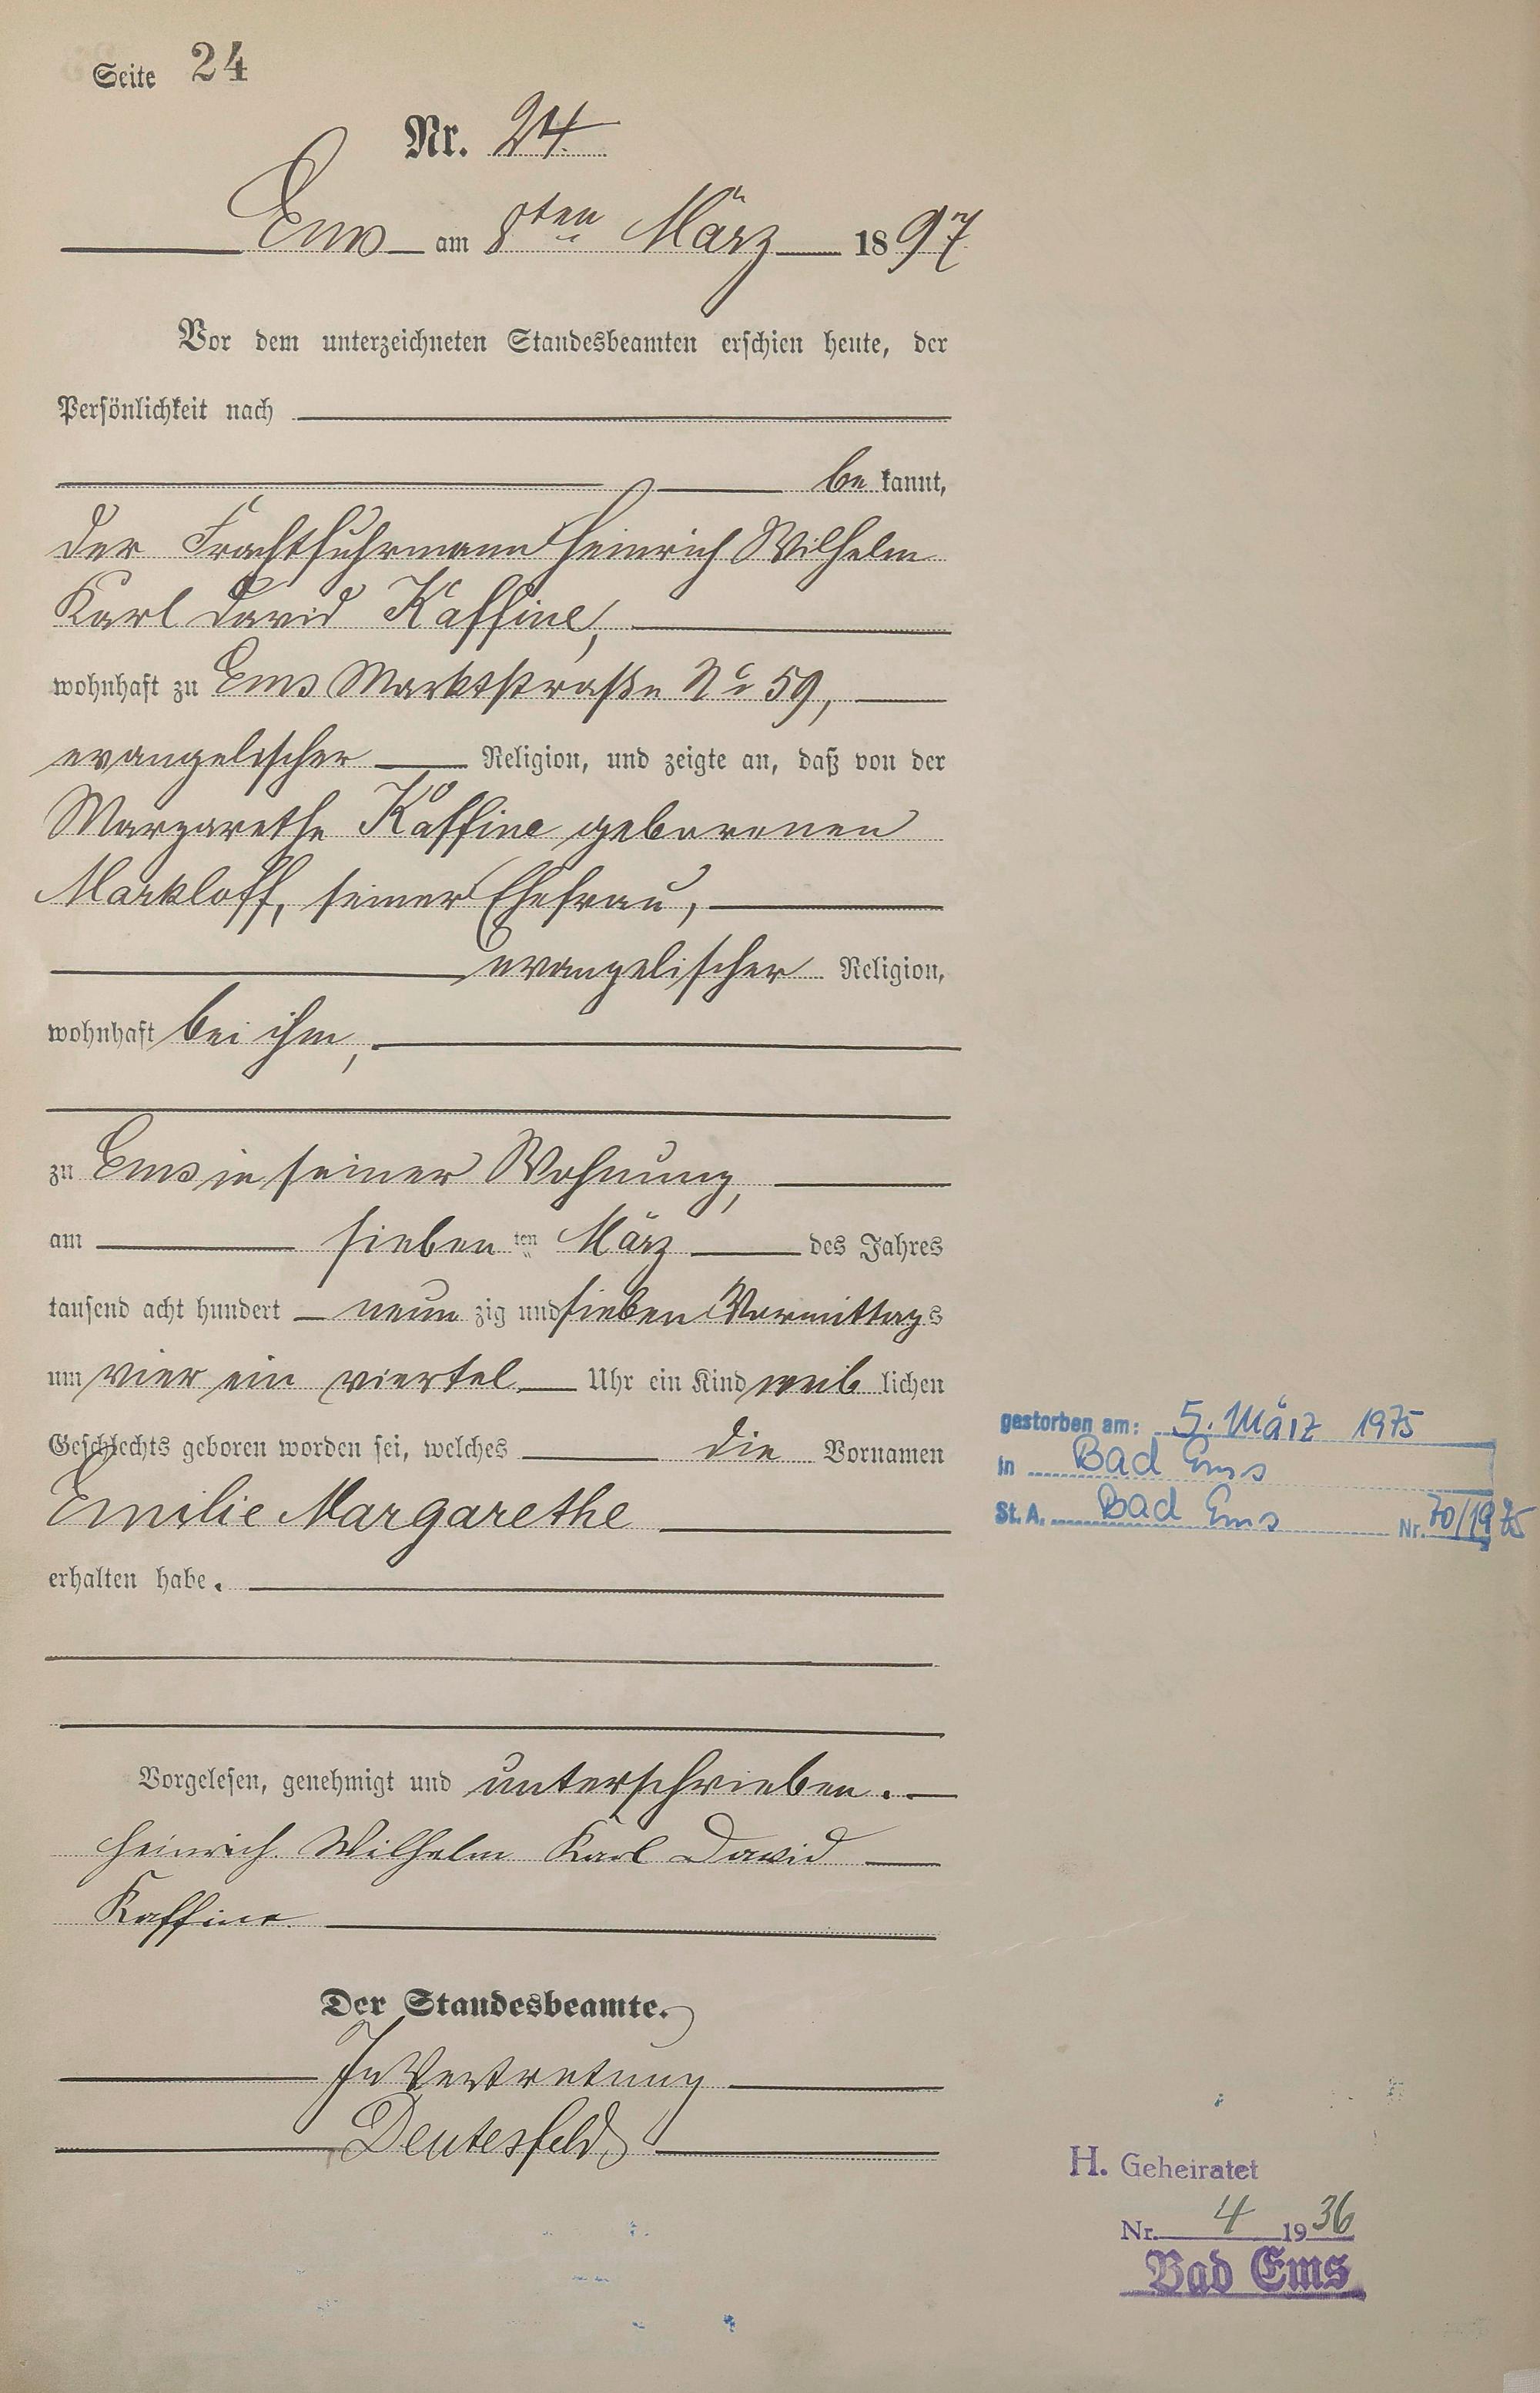 Seite 24
Nr. 24.
Ems am 8ten März 1897
Vor dem unterzeichneten Standesbeamten erschien heute, der
Persönlichkeit nach
be kannt,
der Frachtfuhrmann Heinrich Wilhelm
Karl David Kaffine,
wohnhaft zu Ems Marktstraße No 59,
evangelischer Religion, und zeigte an, daß von der
Margarethe Kaffine geborenen
Markloff, seiner Ehefrau,
evangelischer Religion,
wohnhaft bei ihm,
zu Ems in seiner Wohnung,
am sieben ten März des Jahres
tausend acht hundert neun zig und sieben Vormittags
um vier ein viertel Uhr ein Kind weib lichen
Geschlechts geboren worden sei, welches die Vornamen
Emilie Margarethe
erhalten habe.
Vorgelesen, genehmigt und unterschrieben.
Heinrich Wilhelm Karl David
Kaffine.
Der Standesbeamte.
In Vertretung
Deutesfeld
gestorben am: 5. März 1975
in Bad Ems
St. A. Bad Ems Nr. 70/1975
H. Geheiratet
Nr. 4 1936
Bad Ems